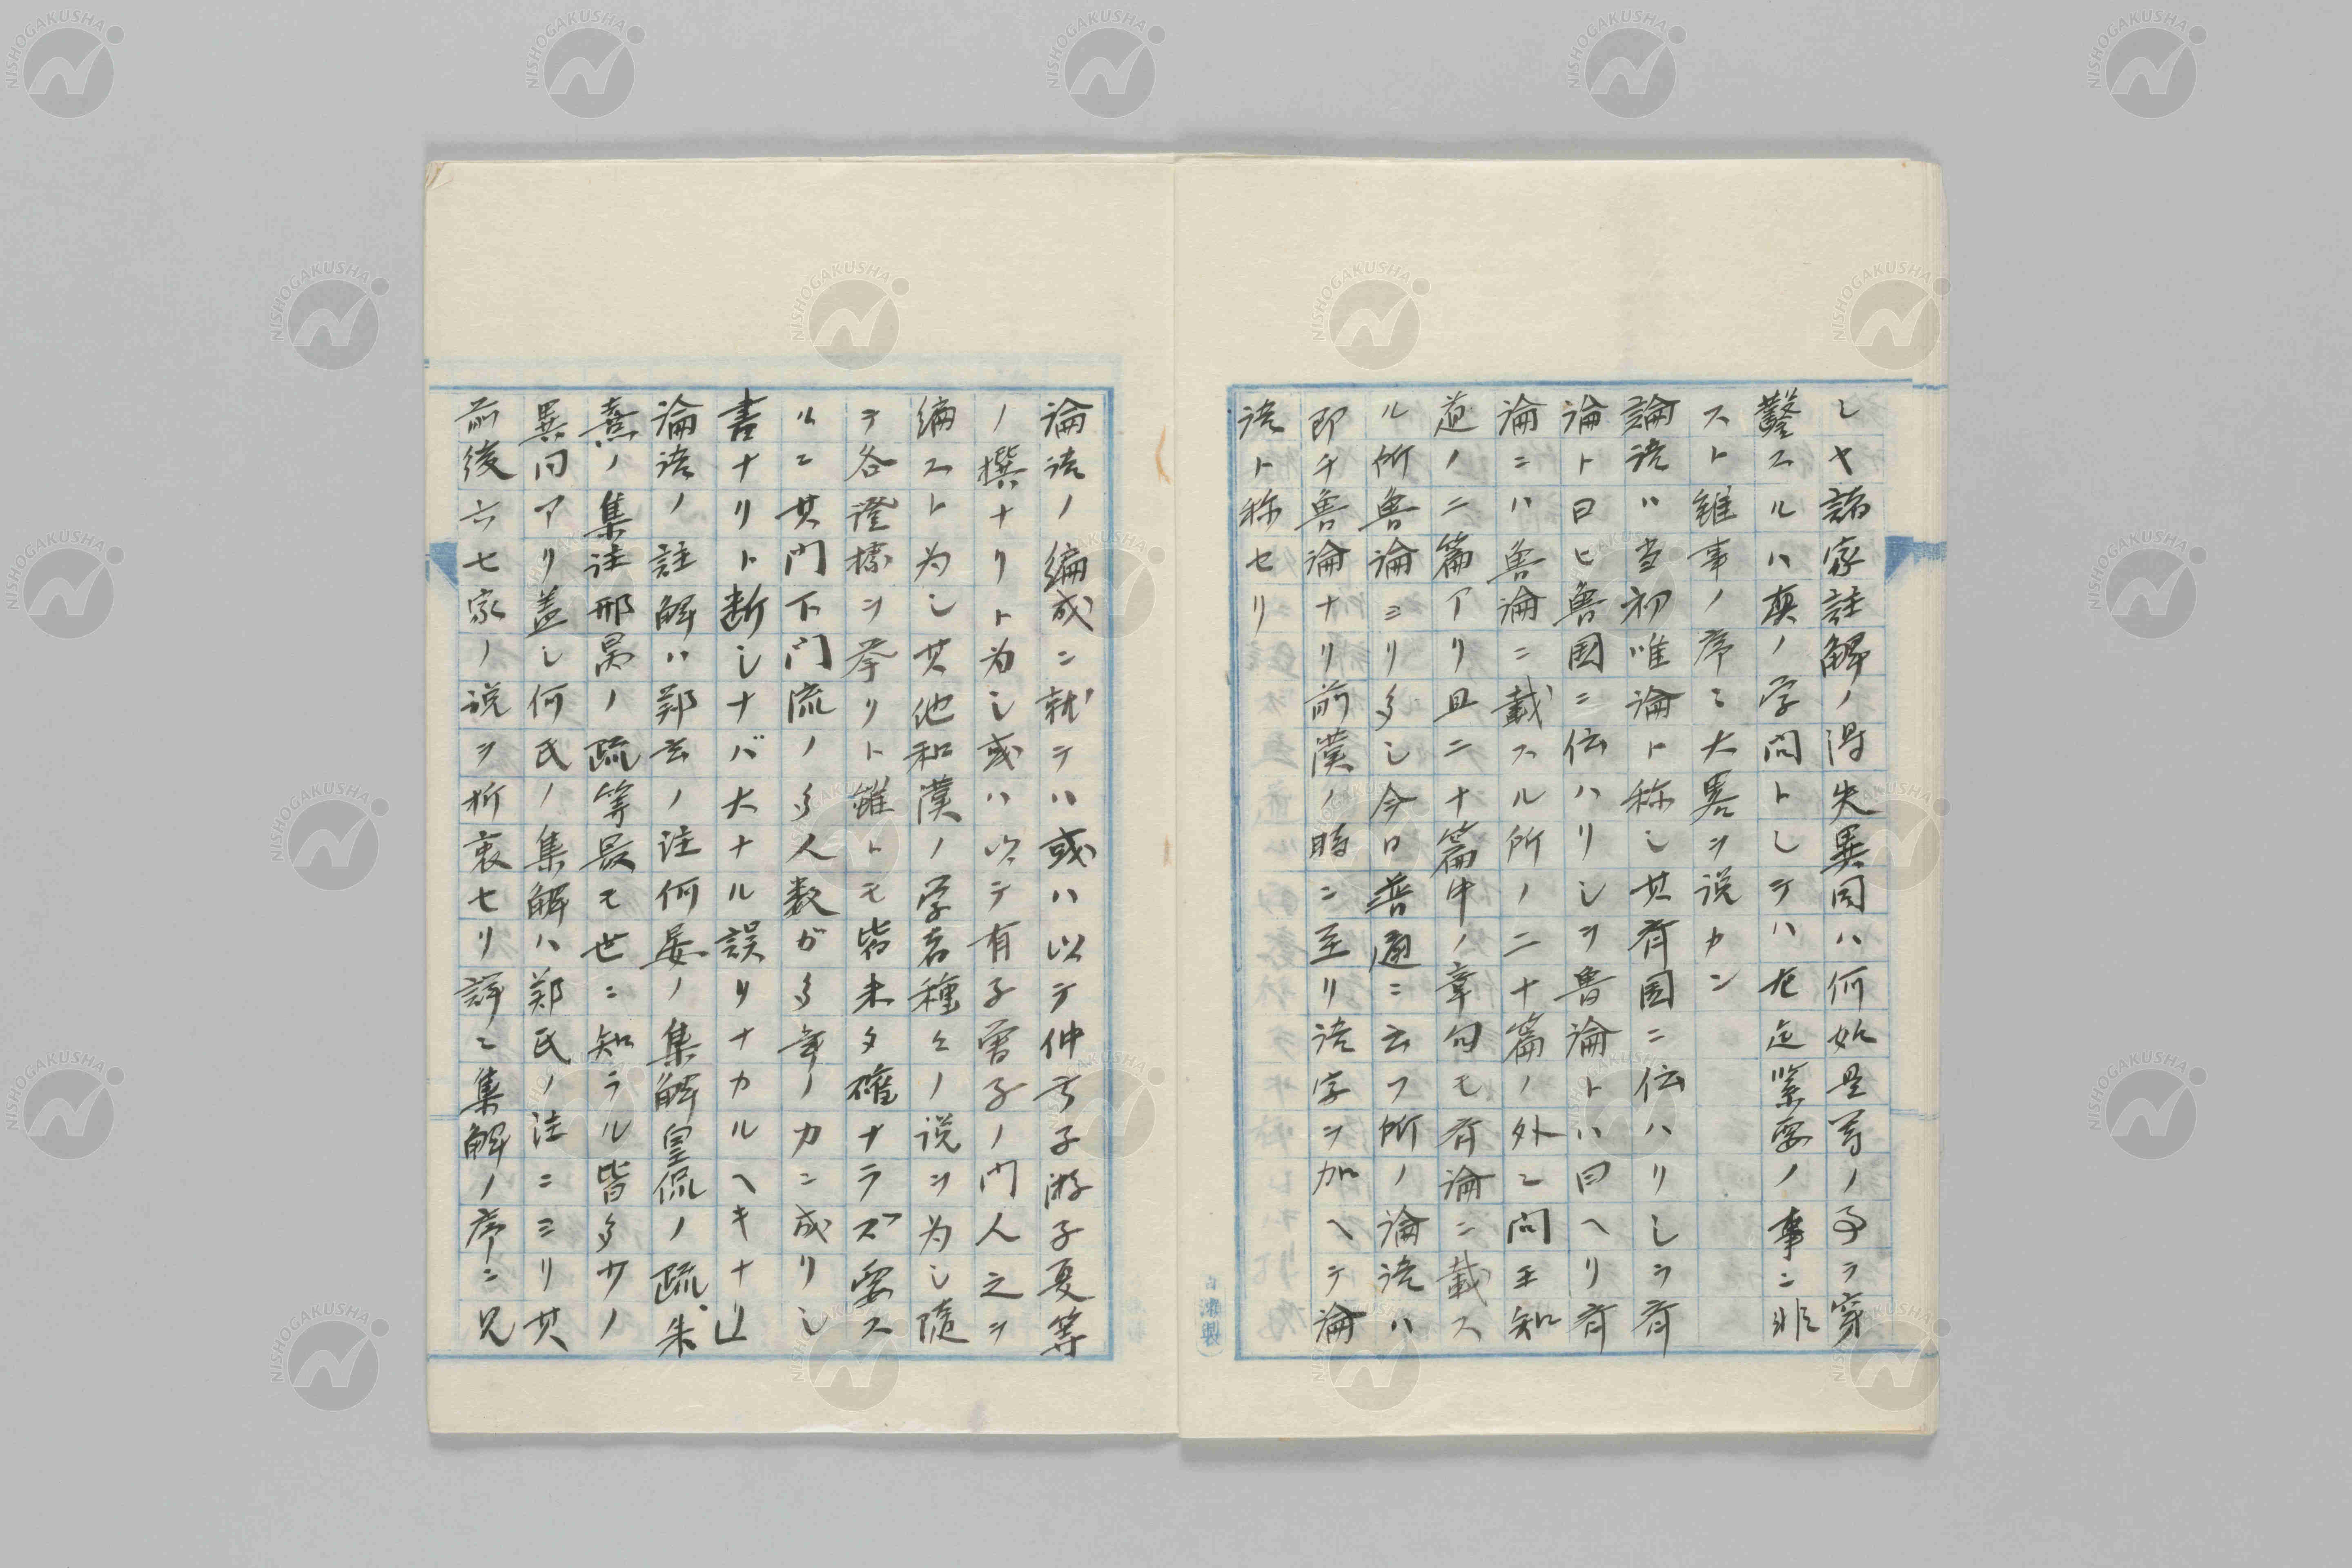 シヤ諸家註解ノ得失異同ハ何如是等ノ事ヲ穿
鑿スルハ真ノ学問トシテハ左迄緊要ノ事ニ非
スト雖事ノ序ニ大畧ヲ説カン
論語ハ当初唯論ト称シ其斉国ニ伝ハリシヲ斉
論ト曰ヒ魯国ニ伝ハリシヲ魯論トハ曰ヘリ斉
論ニハ魯論ニ載スル所ノ二十篇ノ外ニ問王知
道ノ二篇アリ且二十篇中ノ章句モ斉論ニ載ス
ル所魯論ヨリ多シ今日普通ニ云フ所ノ論語ハ
即チ魯論ナリ前漢ノ時ニ至リ語字ヲ加ヘテ論
語ト称セリ
論語ノ編成ニ就テハ或ハ以テ仲弓子游子夏等
ノ撰ナリト為シ或ハ以テ有子曽子ノ門人之ヲ
編スト為シ其他和漢ノ学者種々ノ説ヲ為シ随
テ各證拠ヲ挙リト雖トモ皆未タ確ナラズ要ス
ルニ其門下門流ノ多人数ガ多年ノカニ成リシ
書ナリト断シナバ大ナル誤リナカルヘキナリ
論語ノ註解ハ鄭玄ノ注何晏ノ集解皇侃ノ疏朱
熹ノ集注邢昺ノ疏等最モ世ニ知ラル皆多少ノ
異同アリ蓋シ何氏ノ集解ハ鄭氏ノ注ニヨリ其
前後六七家ノ説ヲ折衷セリ詳ニ集解ノ序ニ見
NISHOGAKUSHA